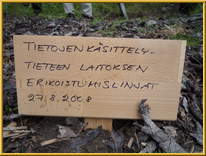 TIETOJEN KÄSITTELY-
TIETEEN LAITOKSEN
ERIKOISTUMISLINNAT
27.8.2008